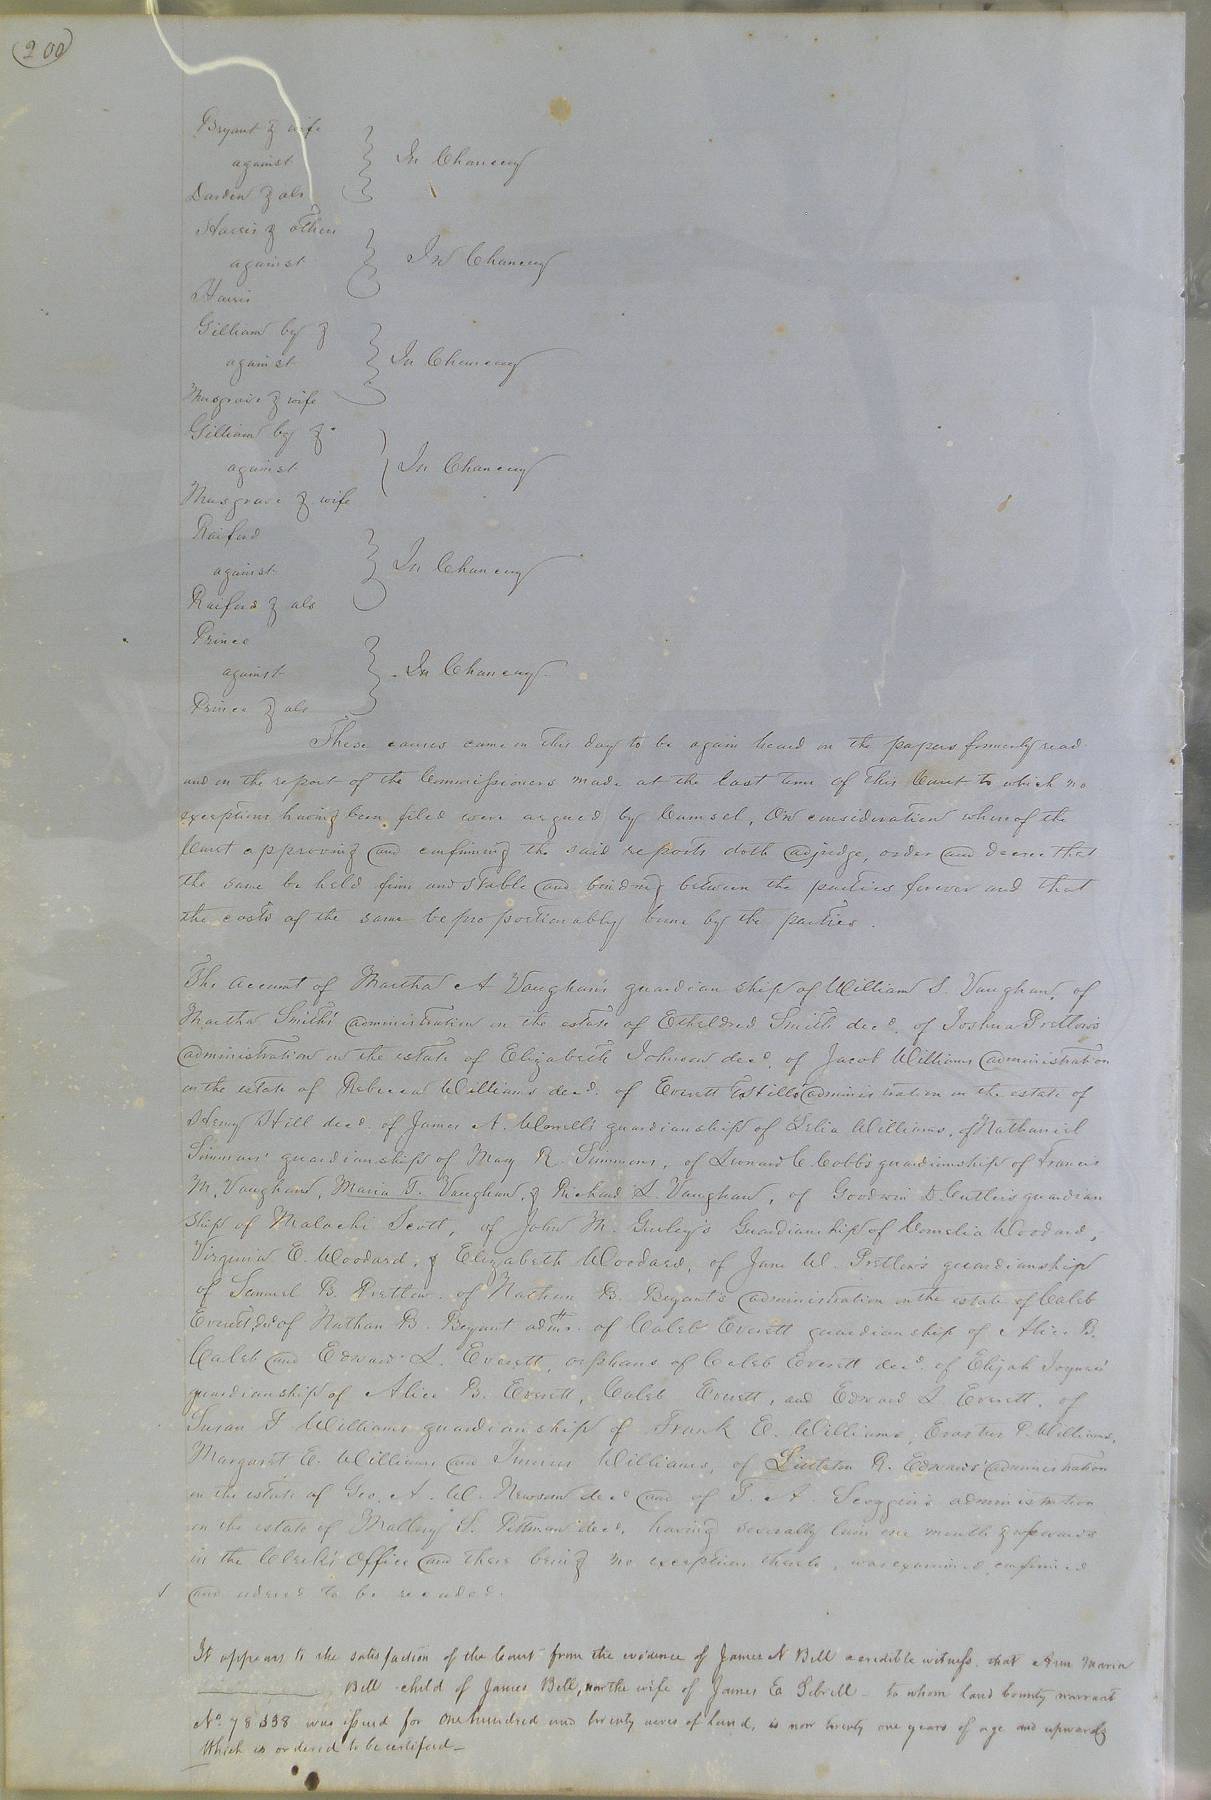 200
Bryant & wife
against } In Chancery
Darden & als
Harris & others
against } In Chancery
Harris
Gilliam by &
against } In Chancery
Musgrave & wife
Gilliam by &
against } In Chancery
Musgrave & wife
Raiford
against } In Chancery
Raiford & als
Prince
against } In Chancery
Prince & als
These causes came on this day to be again heard on the papers formerly read
and on the report of the Commissioners made at the last term of this Court to which no
exceptions having been filed were argued by Counsel, On consideration whereof the
Court approving and confirming the said reports doth adjudge, order and decree that
the same be held firm and stable and binding between the parties forever and that
the costs of the same be proportionably borne by the parties.
The account of Martha A Vaughan's guardianship of William S. Vaughan, of
Martha Smith's administration on the estate of Etheldred Smith decd. of Joshua Pretlow's
administration on the estate of Elizabeth Johnson decd. of Jacob Williams administration
on the estate of Rebecca Williams decd. of Everett Hill's administration on the estate of
Henry Hill decd. of James A. Worrell's guardianship of Lelia Williams, of Nathaniel
Simmons' guardianship of Mary R. Simmons, of Leonard C. Cobb's guardianship of Francis
M. Vaughan, Maria T. Vaughan, & Richard L. Vaughan, of Goodwin D. Cutler's guardian
ship of Malachi Scott, of John M. Gurley's Guardianship of Cornelia Woodard,
Virginia E. Woodard, & Elizabeth Woodard, of Jane W. Pretlow's guardianship
of Samuel B. Pretlow. of Nathan B. Bryant's administration on the estate of Caleb
Everett decd of Nathan B. Bryant admr. of Caleb Everett guardianship of Alice B.
Caleb and Edward L. Everett, orphans of Caleb Everett decd. of Elijah Joyner's
guardianship of Alice B. Everett, Caleb Everett, and Edward L. Everett, of
Susan F Williams guardianship of Frank E. Williams, Erastus P. Williams,
Margaret E. Williams and Junius Williams, of Littleton R. Edwards' administration
on the estate of Geo. A. W. Newsom decd and of T. A. Scoggin's administration
on the estate of Mallory S. Pittman decd. having severally lain one month & upwards
in the Clerk's Office and there being no exceptions thereto, was examined confirmed
and ordered to be recorded.
It appears to the satisfaction of the Court from the evidence of James N Bell a credible witness, that Ann Maria
Bell child of James Bell, now the wife of James E Sebrell to whom land bounty warrant
No. 78338 was issued for One hundred and twenty acres of land, is now twenty one years of age and upwards
Which is ordered to be certified